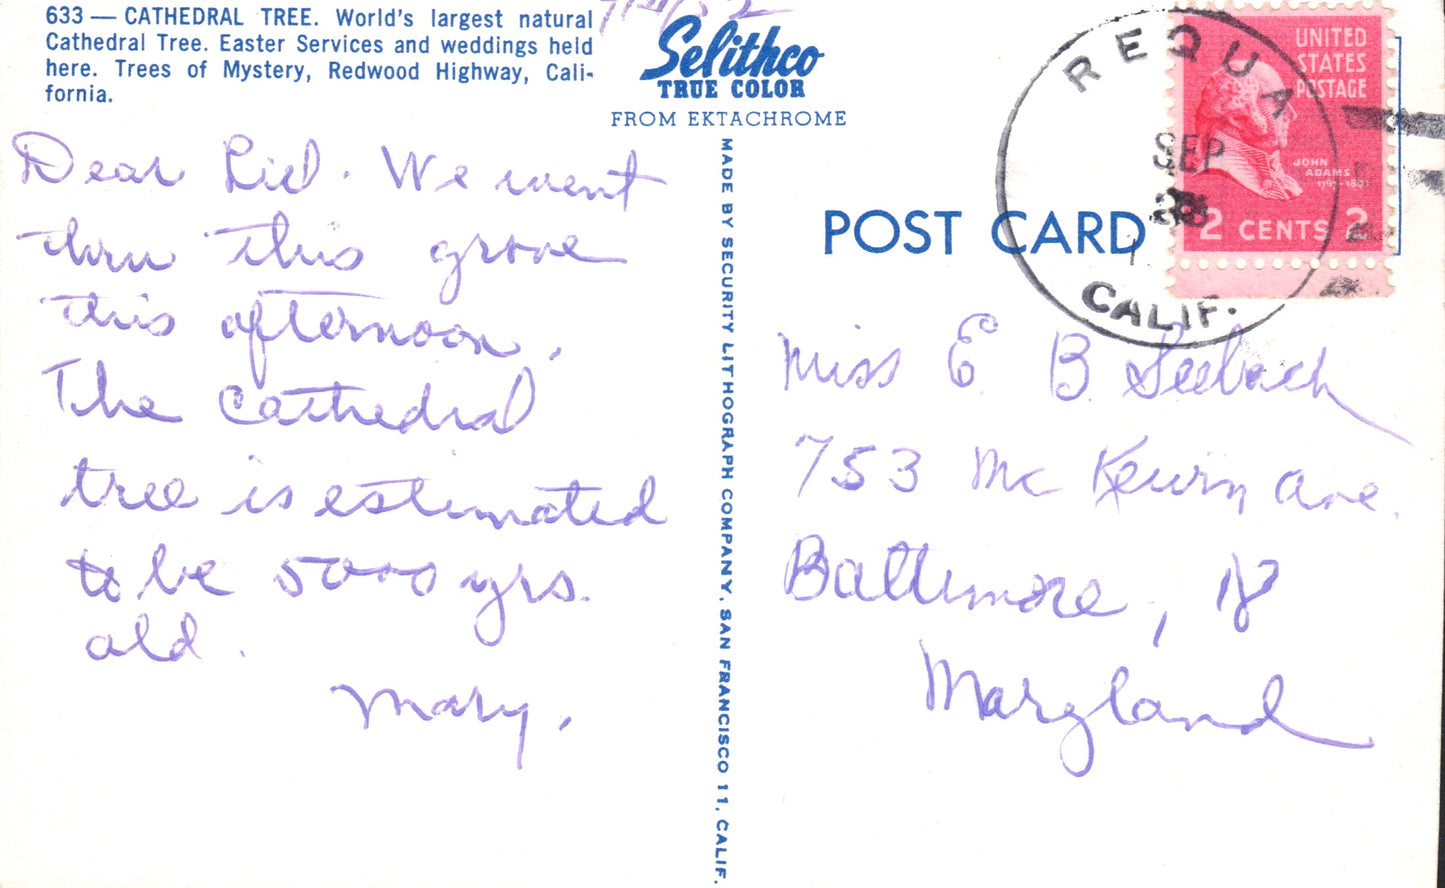 633 — CATHEDRAL TREE. World's largest natural
Cathedral Tree. Easter Services and weddings held
here. Trees of Mystery, Redwood Highway, Cali-
fornia.
Dear . We went
thru this grove
this afternoon.
The Cathedral
tree is estimated
to be 5000 yrs.
old.
Mary.
Selithco
TRUE COLOR
FROM EKTACHROME
MADE BY SECURITY LITHOGRAPH COMPANY, SAN FRANCISCO 11, CALIF.
POST CARD
REQUA
SEP
CALIF.
UNITED
STATES
POSTAGE
JOHN
ADAMS
1797-1801
2 CENTS 2
Miss E. B. Seebach
753 McKewin Ave.
Baltimore, 18
Maryland